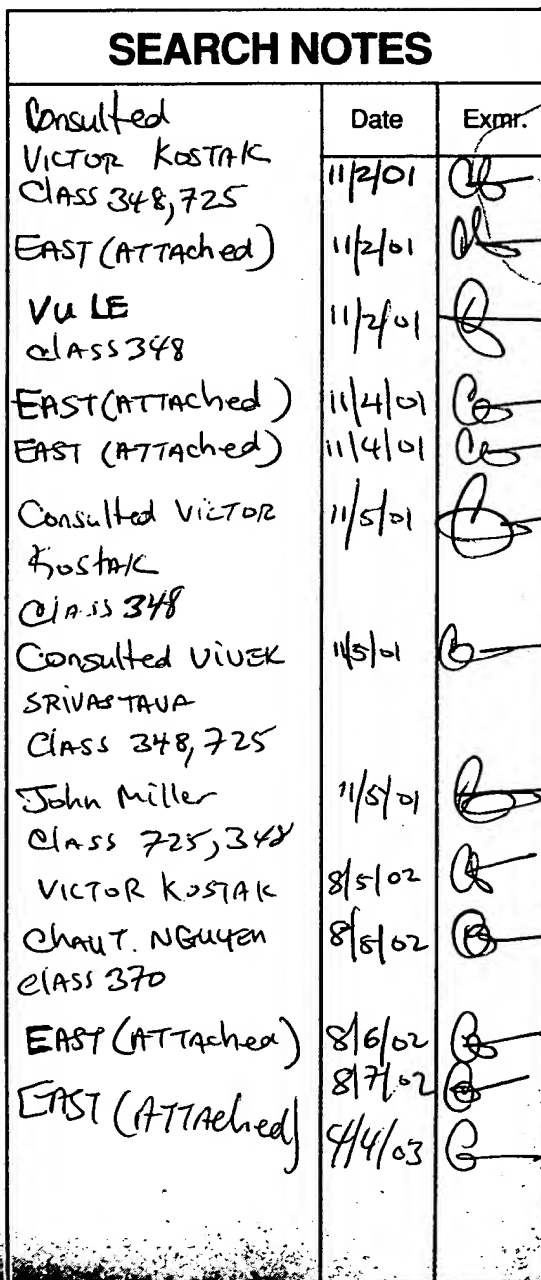 SEARCH NOTES
Date Exmr.
Consulted
VICTOR KOSTAK
Class 348,725 11/2/01
EAST (ATTached) 11/2/01
VU LE 11/2/01
class 348
EAST (ATTached) 11/4/01
EAST (ATTached) 11/4/01
Consulted VICTOR 11/5/01
Kostak
Class 348
Consulted VIVEK 11/5/01
SRIVASTAVA
Class 348,725
John Miller 11/5/01
Class 725,348
VICTOR KOSTAK 8/5/02
Chau T. NGUYEN 8/5/02
class 370
EAST (ATTached) 8/6/02
8/7/02
EAST (ATTached) 4/4/03